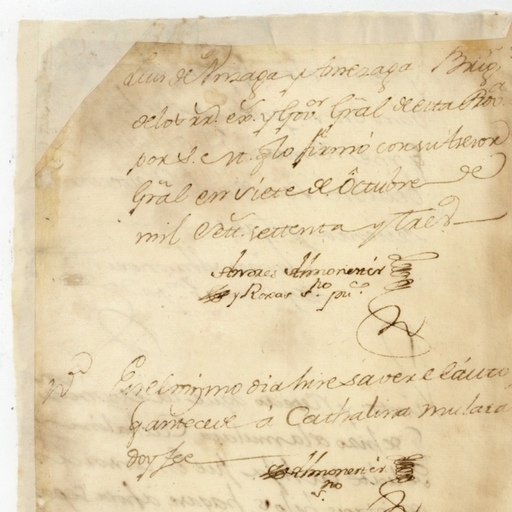 Luis de Unzaga y Amezaga Brigr.
delos Rs. exs. y Govor. Gral de esta Prova.
por S. M. qe lo firmó con su Asesor
Gral en siete de Octubre de
mil Sets. settenta y tres
Almonester
y Roxas Sno. puco.
En el mismo dia hice saver el auto
q antecede á Cathalina mulata
doy fee
Almonester
Sno.